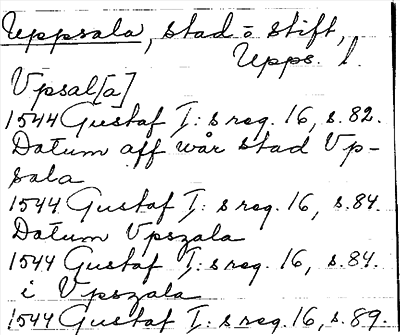 Uppsala, stad o stift,
Upps. l.
Vpsal[a]
1544 Gustaf I:s reg. 16, s. 82.
Datum aff wår stad Vp-
sala
1544 Gustaf I:s reg. 16, s. 84.
Datum Vpszala
1544 Gustaf I:s reg. 16, s. 84.
i Vpszala
1544 Gustaf I:s reg. 16, s. 89.